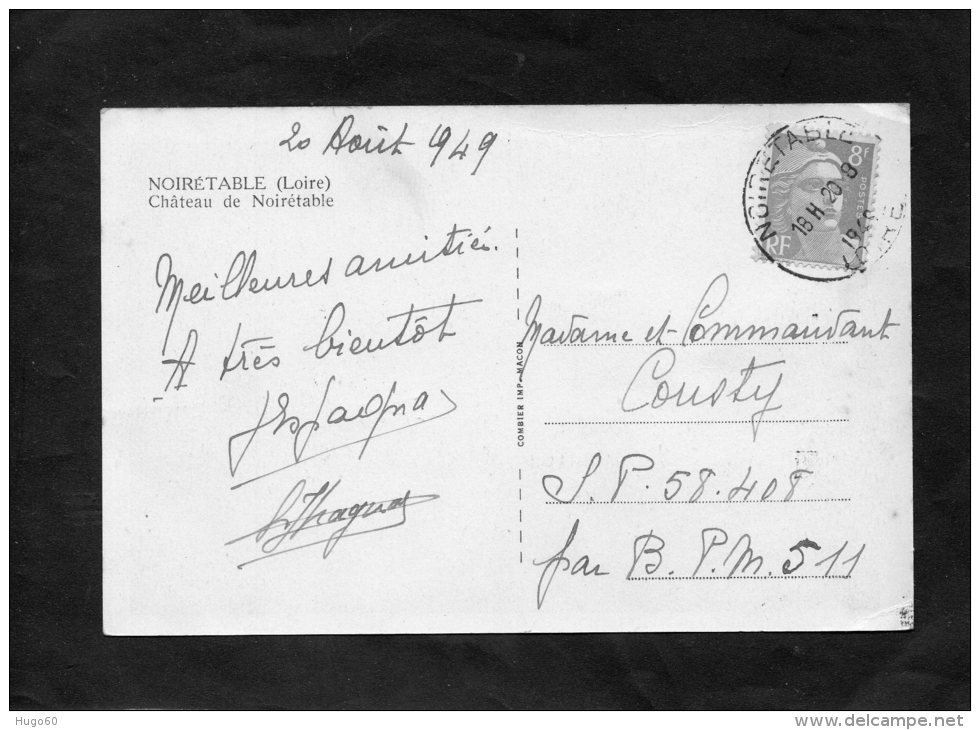 20 Août 1949
NOIRÉTABLE (Loire)
Château de Noirétable
Meilleures amitiés.
A très bientôt
COMBIER IMP. MACON
NOIRETABLE
18 H 20 8
LOIRE
8F
POSTES
RF
Madame et Commandant
Cousty
S. P. 58.408
par B. P. M. 511
Hugo60
www.delcampe.net